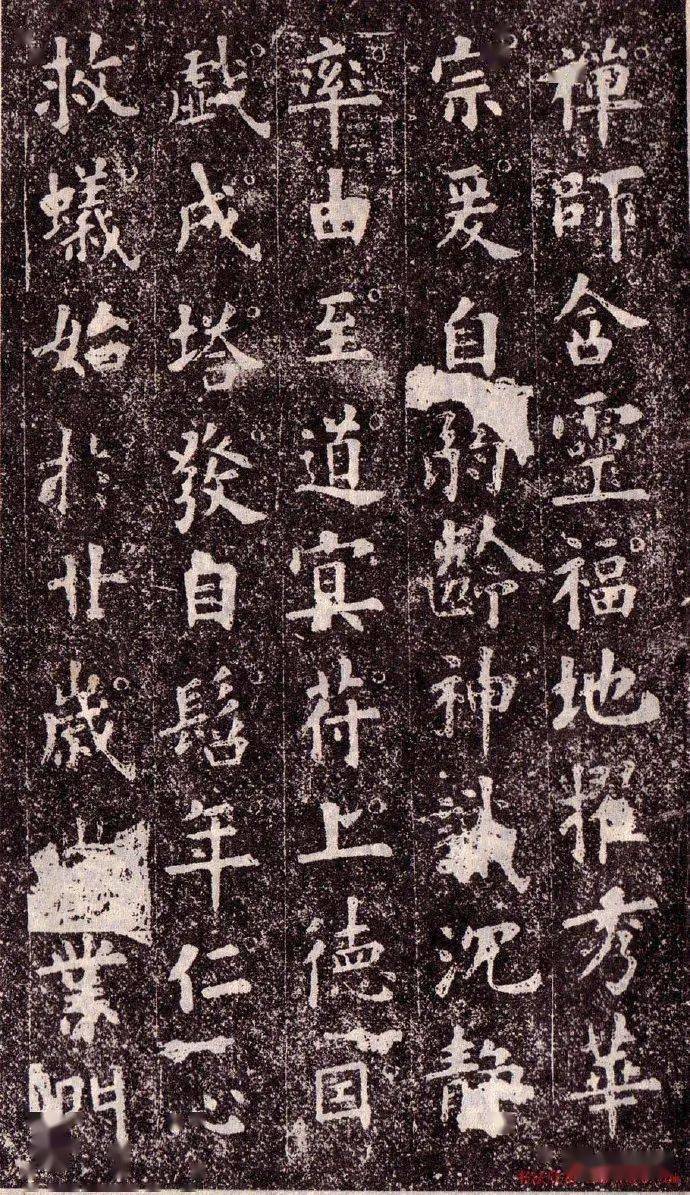 禪師含靈福地擢秀華
宗爰自弱齡神識沉静
率由至道冥苻上徳因
戲成塔發自髫年仁心
救蟻始於廿歲業門